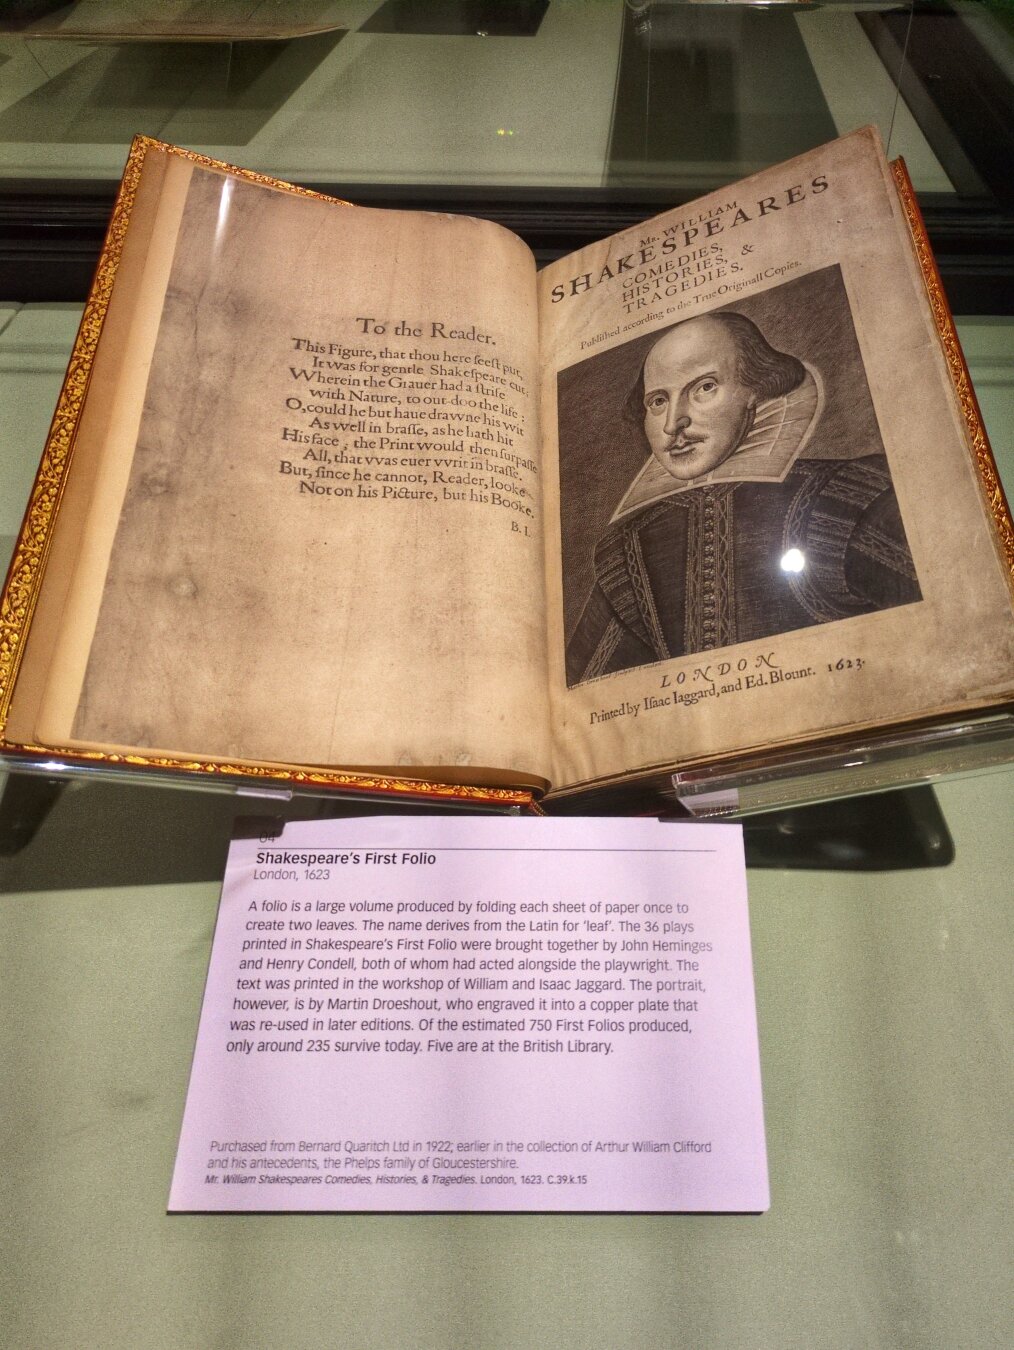 To the Reader.
This Figure, that thou here seeſt put,
It was for gentle Shakeſpeare cut;
Wherein the Grauer had a ſtrife
with Nature, to out-doo the life :
O, could he but haue dravvne his wit
As well in braſſe, as he hath hit
His face ; the Print would then ſurpaſſe
All, that vvas euer vvrit in braſſe.
But, ſince he cannot, Reader, looke
Not on his Picture, but his Booke.
B. I.
Mr. WILLIAM
SHAKESPEARES
COMEDIES,
HISTORIES, &
TRAGEDIES.
Publiſhed according to the True Originall Copies.
LONDON
Printed by Iſaac Iaggard, and Ed. Blount. 1623.
04
Shakespeare's First Folio
London, 1623
A folio is a large volume produced by folding each sheet of paper once to
create two leaves. The name derives from the Latin for 'leaf'. The 36 plays
printed in Shakespeare's First Folio were brought together by John Heminges
and Henry Condell, both of whom had acted alongside the playwright. The
text was printed in the workshop of William and Isaac Jaggard. The portrait,
however, is by Martin Droeshout, who engraved it into a copper plate that
was re-used in later editions. Of the estimated 750 First Folios produced,
only around 235 survive today. Five are at the British Library.
Purchased from Bernard Quaritch Ltd in 1922; earlier in the collection of Arthur William Clifford
and his antecedents, the Phelps family of Gloucestershire.
Mr. William Shakespeares Comedies, Histories, & Tragedies. London, 1623. C.39.k.15